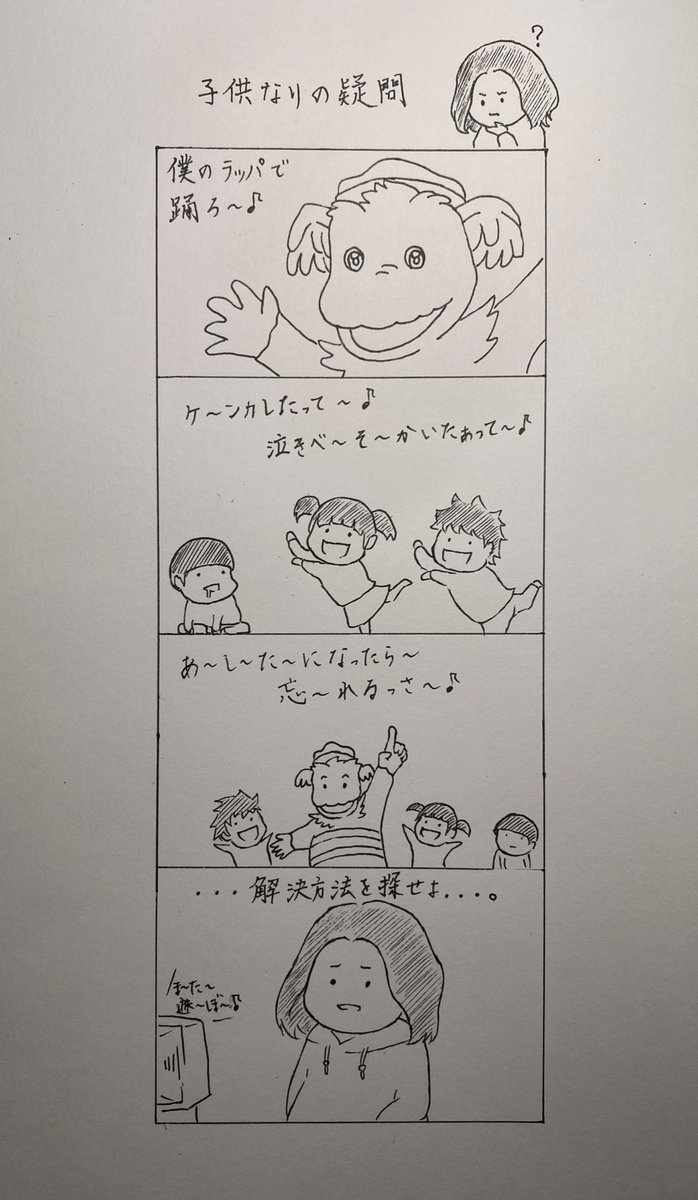 ?
子供なりの疑問
僕のラッパで
踊ろ〜♪
ケ〜ンカしたって〜♪
泣きべ〜そ〜かいたぁって〜♪
あ〜し〜た〜になったら〜
忘〜れるっさ〜♪
...解決方法を探せよ...。
ま〜た〜
遊〜ぼ〜♪